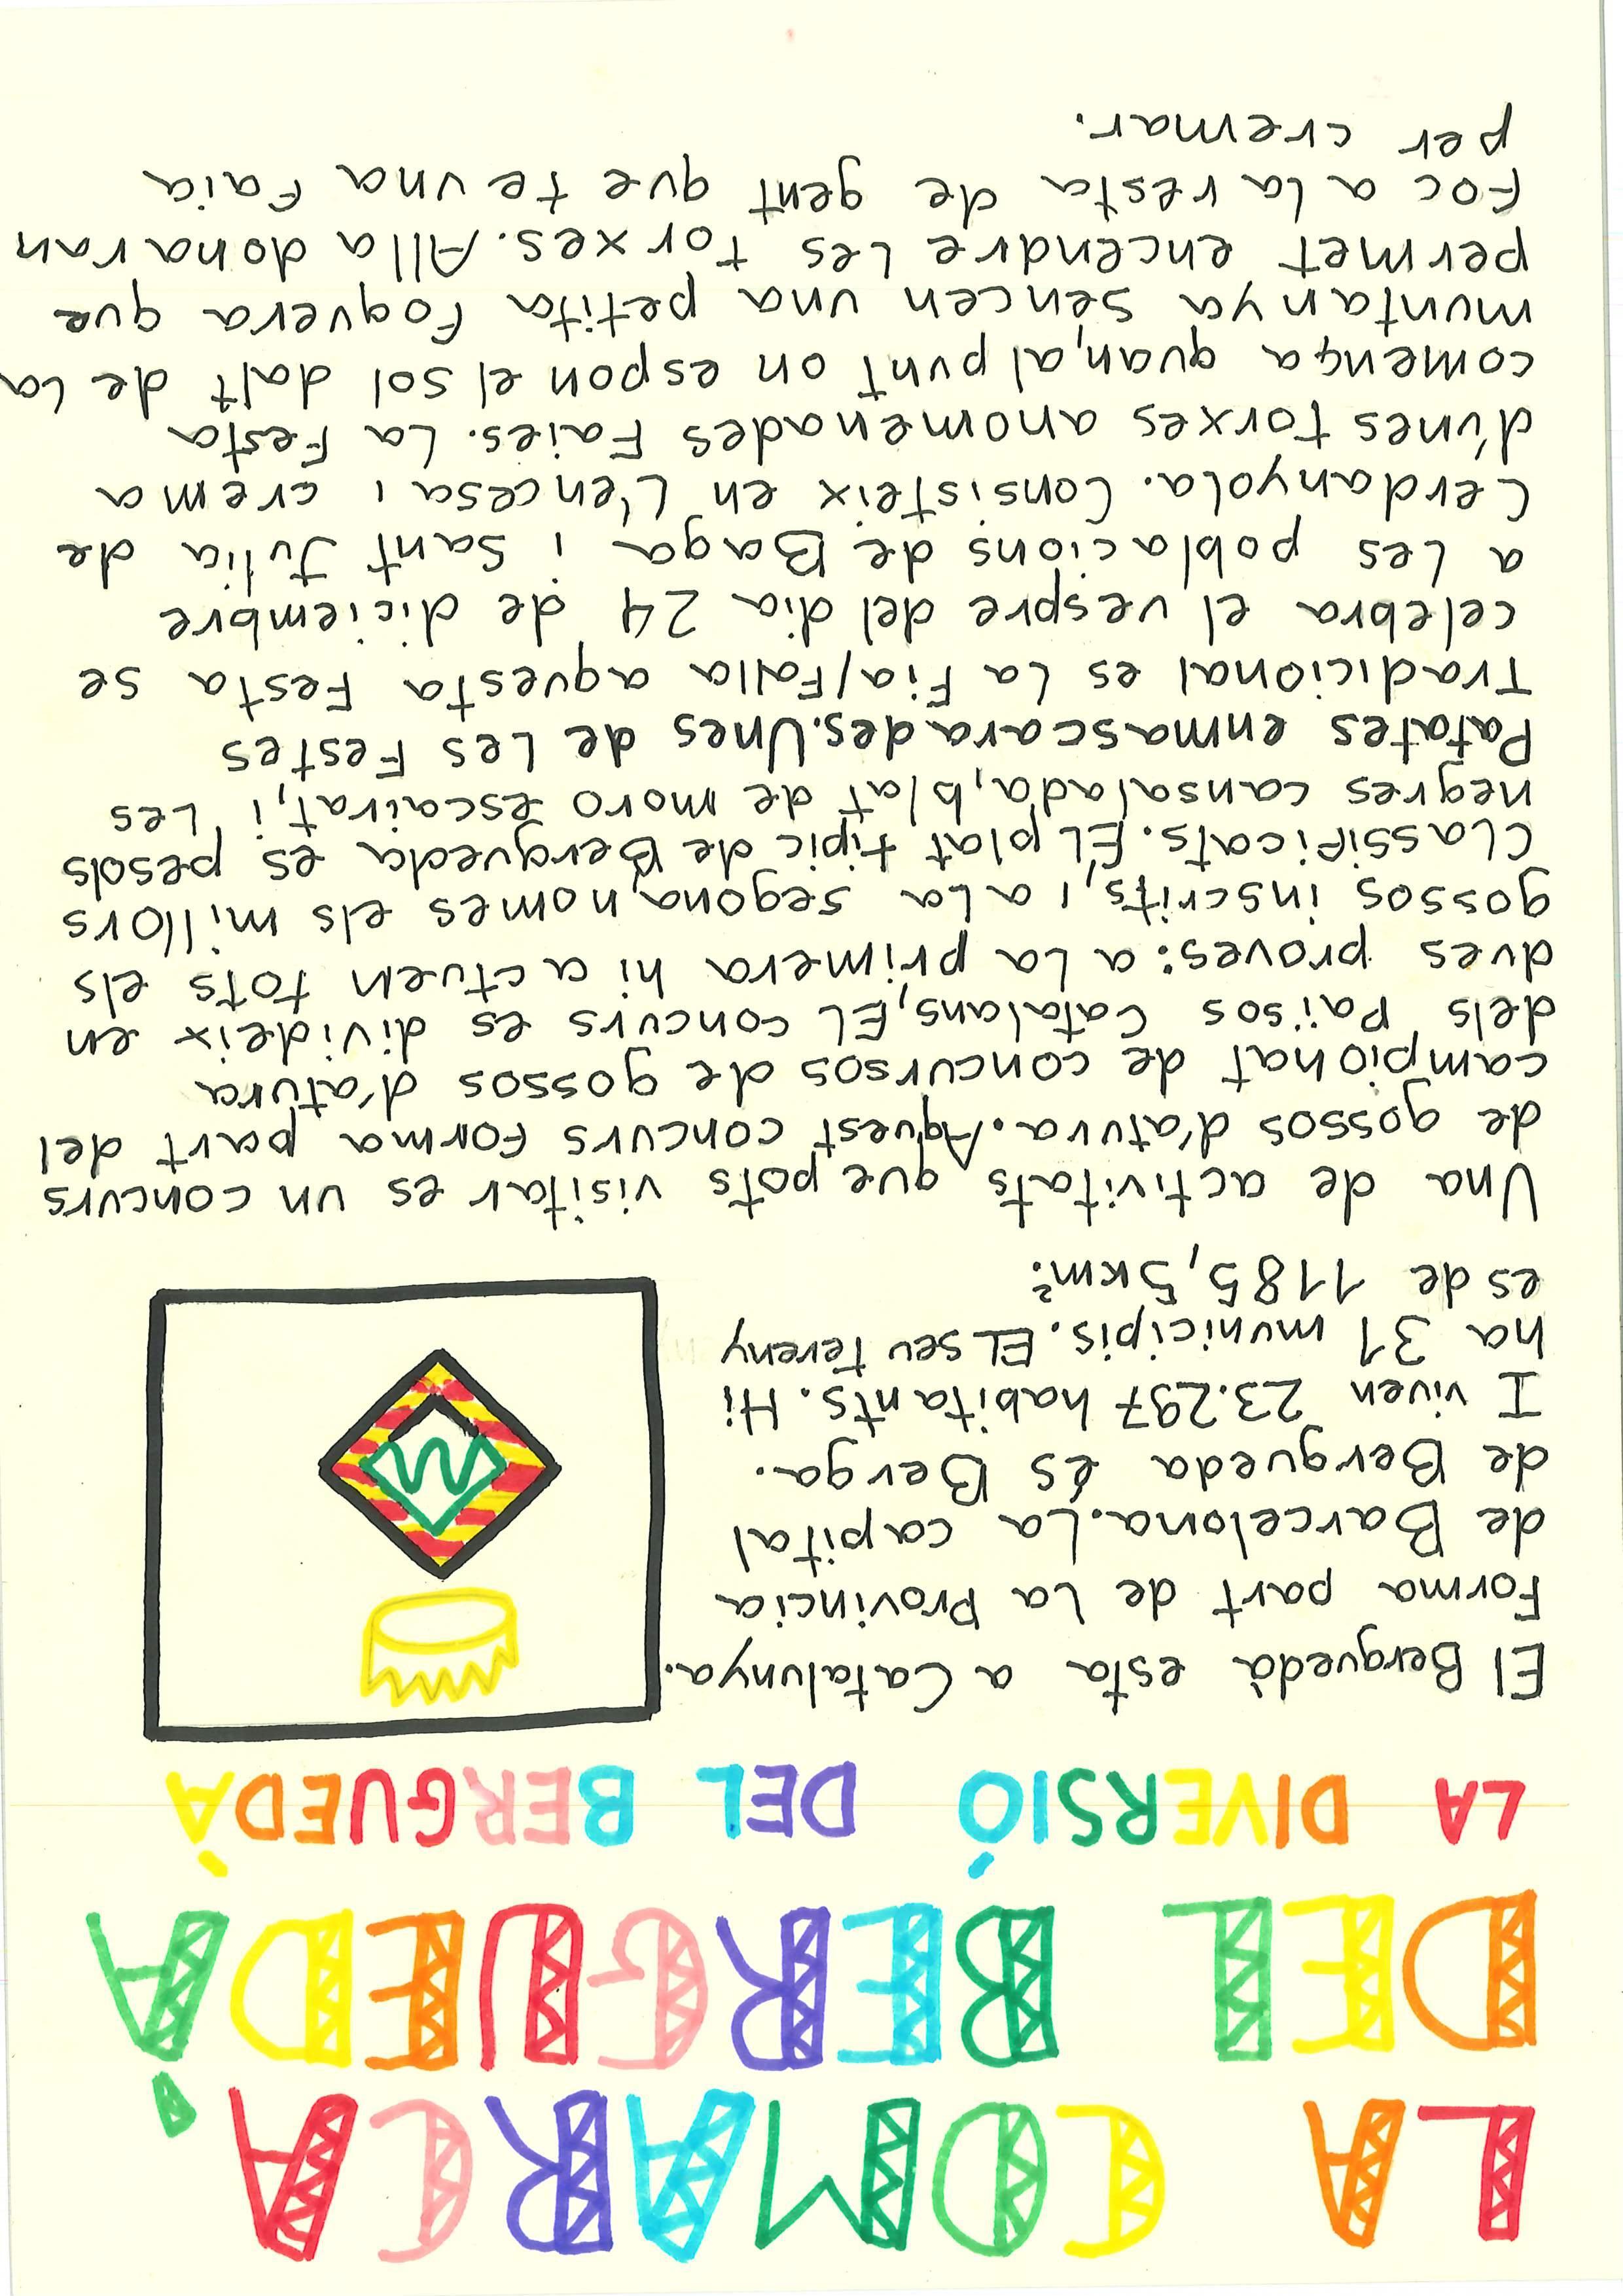 LA COMARCA
DEL BERGUEDÀ
LA DIVERSIÓ DEL BERGUEDÀ
El Berguedà esta a Catalunya.
Forma part de La Provincia
de Barcelona. La capital
de Bergueda és Berga.
I viven 23.297 habitants. Hi
ha 31 municipis. EL seu tereny
es de 1185,5km².
Una de activitats que pots visitar es un concurs
de gossos d'atura. Aquest concurs forma part del
campionat de concursos de gossos d'atura
dels Països Catalans, EL concurs es divideix en
dues proves: a La primera hi actuen tots els
gossos inscrits, i a La segona, nomes els millors
CLassificats. EL plat tipic de Bergueda es pesols
negres cansalada, blat de moro escairat, i Les
Patates enmascarades. Unes de Les Festes
Tradicional es La Fia/Falla aquesta Festa se
celebra el vespre del dia 24 de diciembre
a Les poblacions de Baga i Sant Julia de
Cerdanyola. Consisteix en L'encesa i crema
d'unes torxes anomenades Faies. La Festa
comença quan, al punt on espon el sol dalt de La
muntanya sencen una petita Foguera que
permet encendre Les torxes. Alla donaran
Foc a La resta de gent que te una Faia
per cremar.